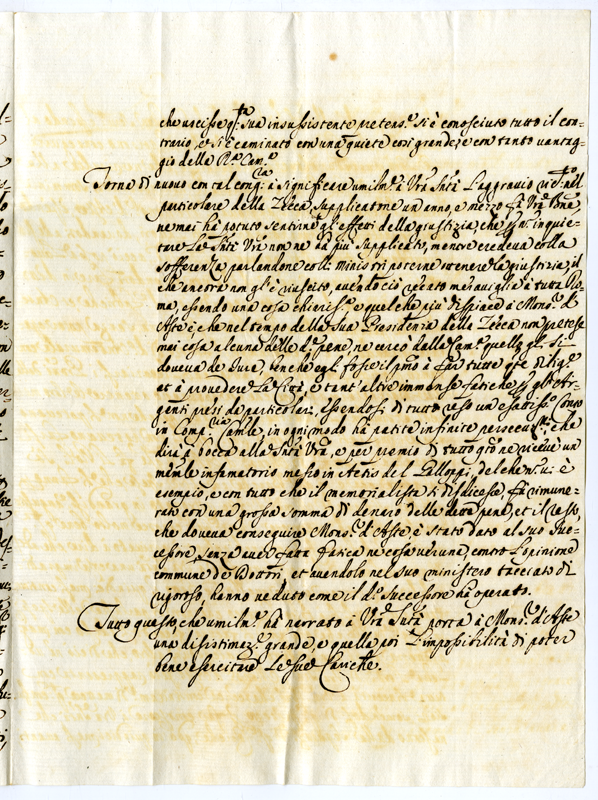 che uscisse q.ta sua insussistente pretens.e si è conosciuto tutto il con=
trario, e si è caminato con una quiete così grande, e con tanto vantag=
gio della R.a Cam.a
Torna di nuovo con tal cong.ra à significare umilm.te à V̄ra Sn̄tà l'aggravio nel
particolare della Zecca, supplicatone un anno, e mezzo fà V̄ra Bne,
ne mai hà potuto sentirne gl'effetti della giustizia, che p non inquie=
tare La Sn̄tà V̄ra non ne hà più supplicato, mentre credeva colla
sofferenza parlandone coll: ministri poterne ottenere la giustizia, il
che ancora non gl'è riuscito, avendo ciò recato meraviglia à tutta Ro=
ma, essendo una cosa chiariss.a e quel che più dispiace à Mons.r d'
Aste è, che nel tempo della sua Presidenza della Zecca non pretese
mai cosa alcuna delle d.e pene, ne cercò dalla Cam.a quello gli si
doveva de Jure, benche egli fosse il pmo à far tutte q.te dilig.e
et à provedere La Città, e tant'altre immense fatiche p gl'Ar=
genti presi de particolari, essendosi di tutto reso un esattiss.o Conto
in Comp.ria Cam.le in ogni modo hà patite infinite persecuz.ni, e che
dirà à bocca alla Sn̄tà V̄ra, e per premio di tutto ciò ne riceve un
mem̄le infamatorio messo in Actis del Galloppi, del che non v'è
esempio, e con tutto che il memorialista si disdicesse, fù rimune=
rato con una grossa somma di denaro delle dette pene, et il resto,
che doveva conseguire Mons.r d'Aste, è stato dato al suo Suc=
cessore, senza aver fatta fatica ne cosa veruna, contro l'opinione
commune de Dottori, et avendolo nel suo ministero tacciato di
rigoroso, hanno veduto come il d.o Successore hà operato.
Tutto questo, che umilm.te hà narrato à V̄ra Sn̄tà porta à Mons.r d'Aste
una disistimaz.e grande, e quella poi l'impossibilità di poter
bene esercitare Le sue Cariche.